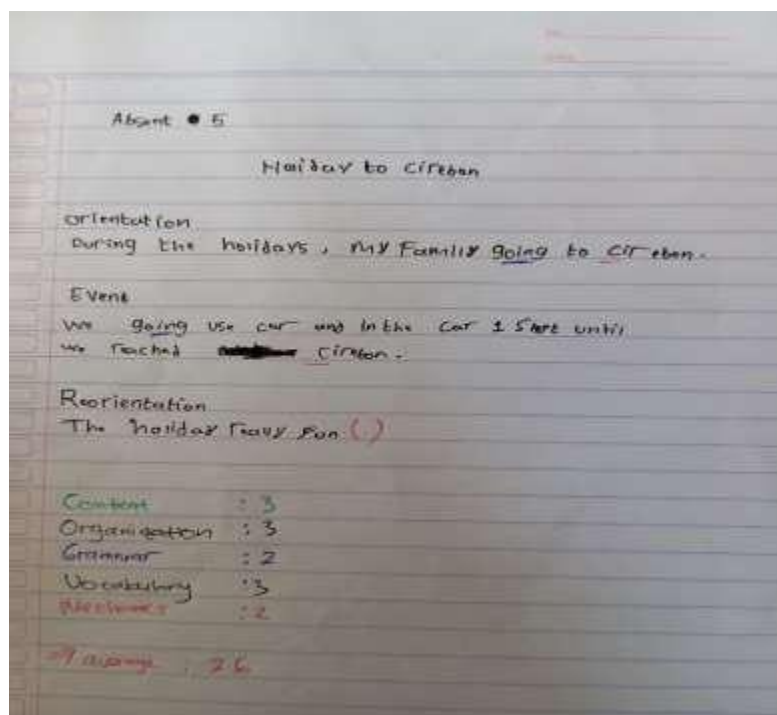 Absent 5
Holiday to Cirebon
Orientation
During the holidays, my Family going to Cirebon.
Event
We going use car and in the car I Sleep until
we reached Cirebon.
Reorientation
The holiday really fun (.)
Content : 3
Organization : 3
Grammar : 2
Vocabulary : 3
Mechanics : 2
average : 2.6